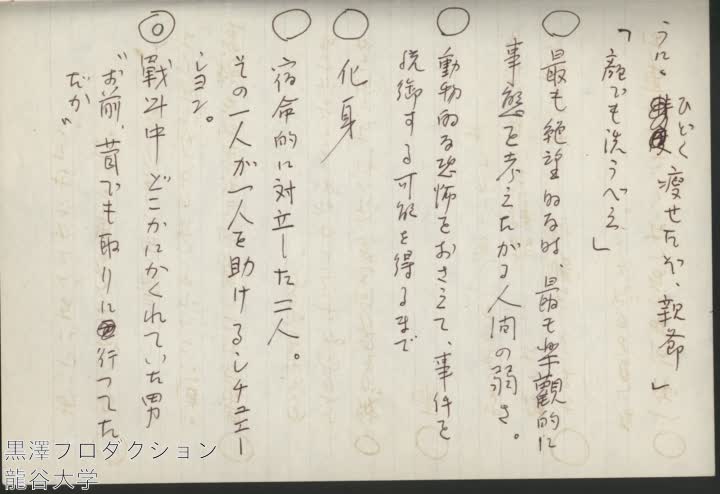 うに。ひどく痩せたな、親爺」
「顔でも洗うべえ」
◯ 最も絶望的な時、最も楽観的に
事態を考えたがる人間の弱さ。
◯ 動物的な恐怖をおさえて、事件を
統御する可能を得るまで
◯ 化身
◯ 宿命的に対立した二人。
その一人が一人を助けるシチュエー
ション。
◎ 戦斗中どこかにかくれていた男
"お前、首でも取りに行ってた
だか"
黒澤プロダクション
龍谷大学